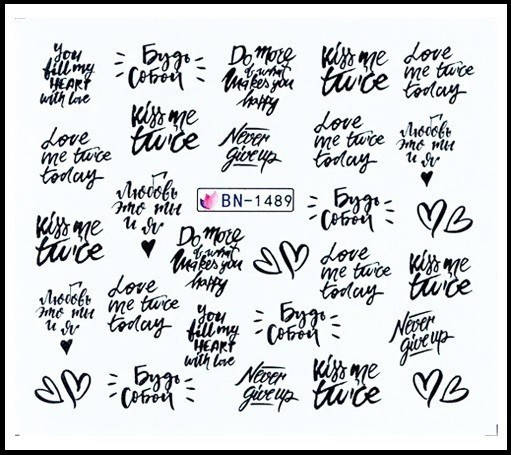 You
fill my
HEART
with love
Будь
собой
Do more
of what
makes you
happy
Kiss me
twice
Love
me twice
today
Love
me twice
today
Kiss me
twice
Never
give up
Love
me twice
today
Любовь
это ты
и я
Любовь
это ты
и я
BN-1489
Будь
собой
Kiss me
twice
Do more
of what
makes you
happy
Love
me twice
today
Kiss me
twice
Любовь
это ты
и я
Love
me twice
today
You
fill my
HEART
with love
Будь
собой
Never
give up
Будь
собой
Never
give up
Kiss me
twice